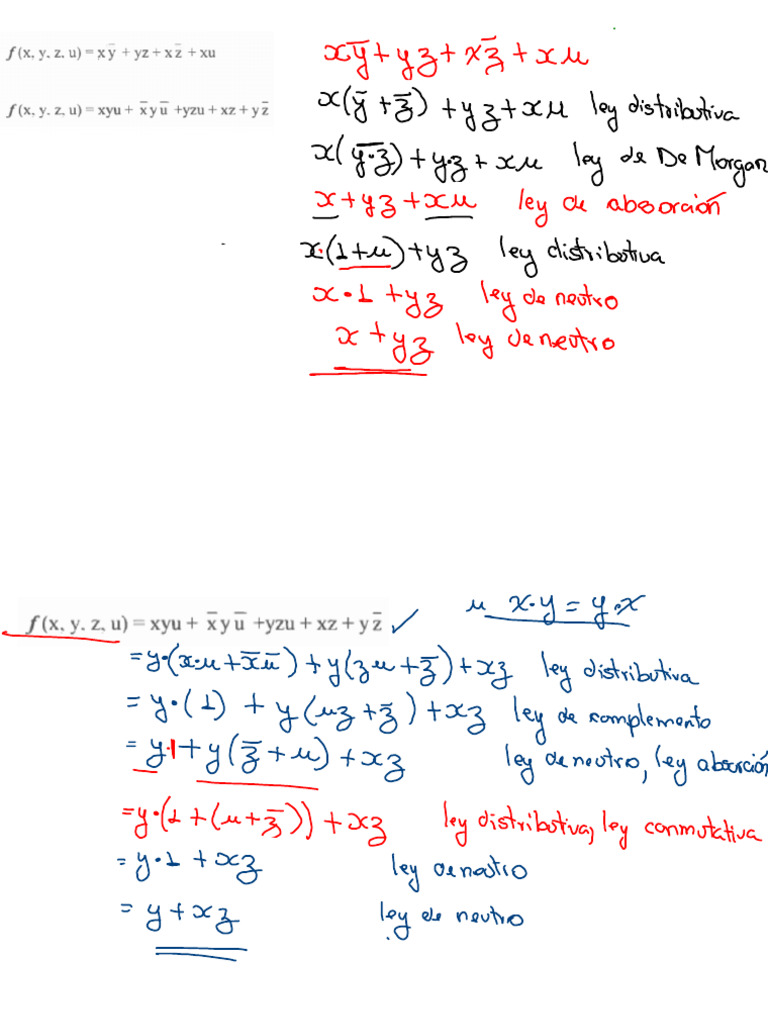 f(x, y. z, u) = x y̅ + yz + x z̅ + xu
f(x, y. z, u) = xyu + x̅ y u̅ +yzu + xz + y z̅
x y̅ + y z + x z̅ + x u
x(y̅ + z̅) + y z + x u ley distributiva
x(y̅·̅z̅) + y·z + x u ley de De Morgan
x + y z + x u ley de absorción
x·(1+u) + y z ley distributiva
x·1 + y z ley de neutro
x + y z ley de neutro
u x·y = y·x
f(x, y. z, u) = xyu + x̅ y u̅ +yzu + xz + y z̅ ✓
= y·(x·u + x̅ u̅) + y(z u + z̅) + x z ley distributiva
= y·(1) + y(u z + z̅) + x z ley de complemento
= y·1 + y(z̅ + u) + x z ley de neutro, ley absorción
= y·(1 + (u + z̅)) + x z ley distributiva, ley conmutativa
= y·1 + x z ley de neutro
= y + x z ley de neutro